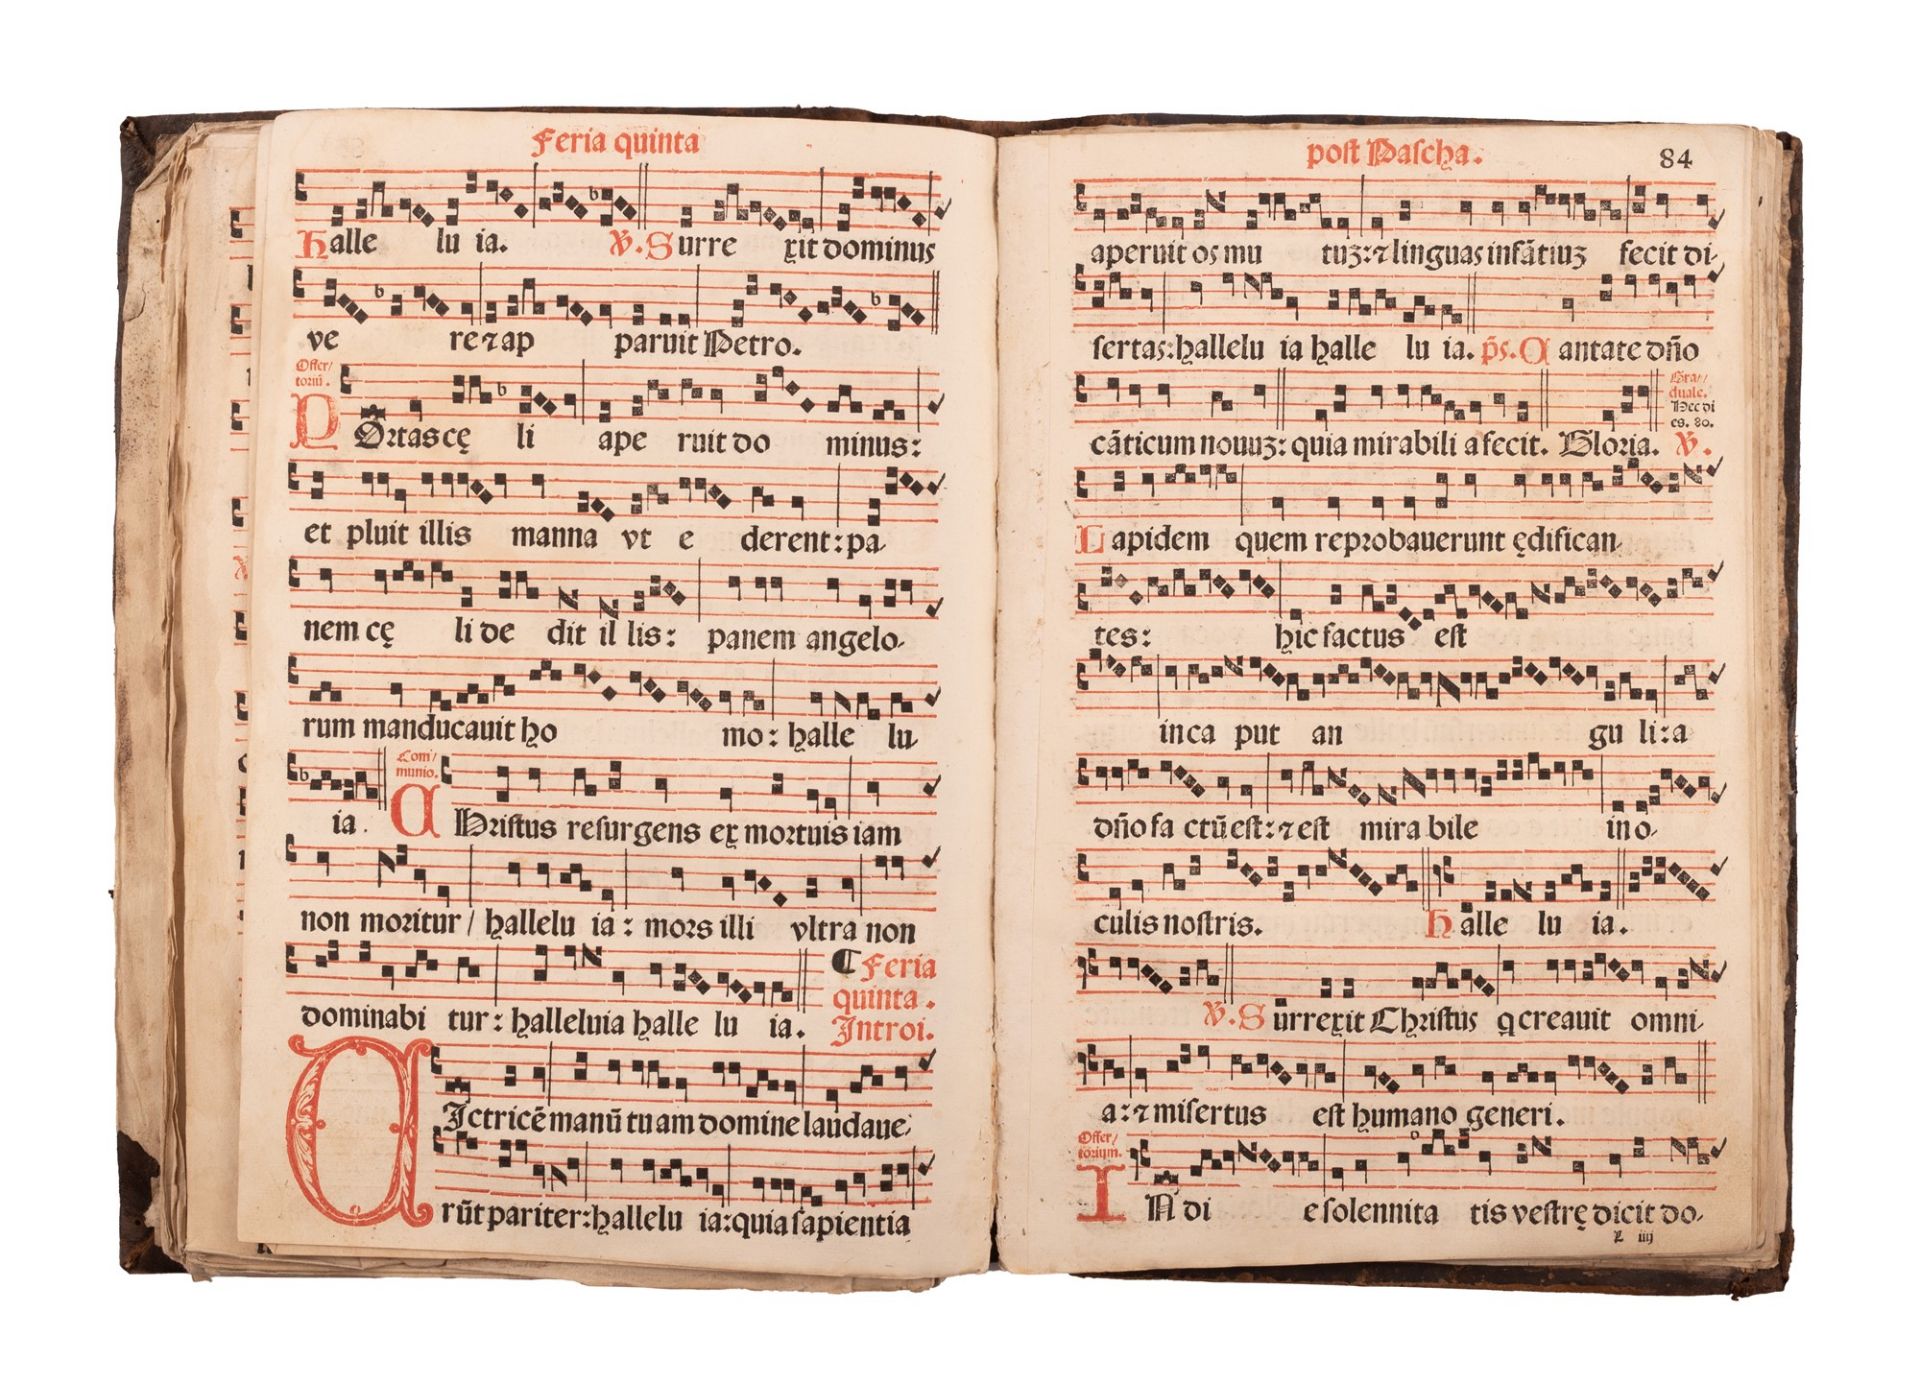 Feria quinta
Halle lu ia. ℣. Surre xit dominus
ve re ⁊ ap paruit Petro.
Offer/
toriū.
POrtas cę li ape ruit do minus:
et pluit illis manna vt e derent: pa-
nem cę li de dit il lis: panem angelo-
rum manducauit ho mo: halle lu-
ia.
Com/
munio.
CHristus resurgens ex mortuis iam
non moritur / hallelu ia: mors illi vltra non
dominabi tur: halleluia halle lu ia.
¶ Feria
quinta.
Introi.
UIctricē manū tuam domine laudaue-
rūt pariter: hallelu ia: quia sapientia
post Pascha. 84
aperuit os mu tuꝫ: ⁊ linguas infātiuꝫ fecit di-
sertas: hallelu ia halle lu ia. p̄s. Cantate dn̄o
cāticum nouuꝫ: quia mirabili a fecit. Gloria. ℣.
Gra/
duale.
Hec di
es. 80.
Lapidem quem reprobauerunt ędifican-
tes: hic factus est
in ca put an gu li: a
dn̄o fa ctū est: ⁊ est mira bile in o-
culis nostris. Halle lu ia.
℣. Surrexit Christus q creauit omni-
a: ⁊ misertus est humano generi.
Offer/
torium.
IN di e solennita tis vestrę dicit do-
L iiij